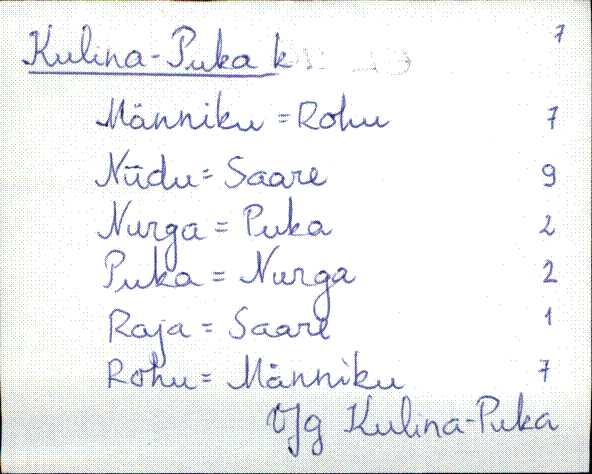 Kulina-Puka k 7
Männiku = Rohu 7
Nüdu = Saare 9
Nurga = Puka 2
Puka = Nurga 2
Raja = Saare 1
Rohu = Männiku 7
V/g Kulina-Puka